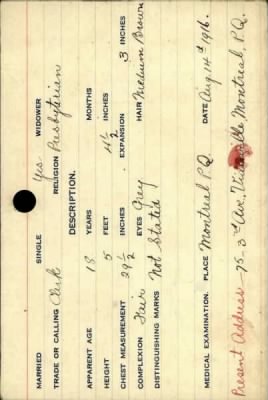 MARRIED SINGLE Yes WIDOWER
TRADE OR CALLING Clerk RELIGION Presbyterian
DESCRIPTION.
APPARENT AGE 18 YEARS MONTHS
HEIGHT 5 FEET 4½ INCHES
CHEST MEASUREMENT 29½ INCHES EXPANSION 3 INCHES
COMPLEXION Fair EYES Grey HAIR Medium Brown
DISTINGUISHING MARKS Not Stated
MEDICAL EXAMINATION. PLACE Montreal P.Q DATE Aug 14th 1916.
Present Address - 75 - 3rd Ave, Viauville Montreal, P.Q.